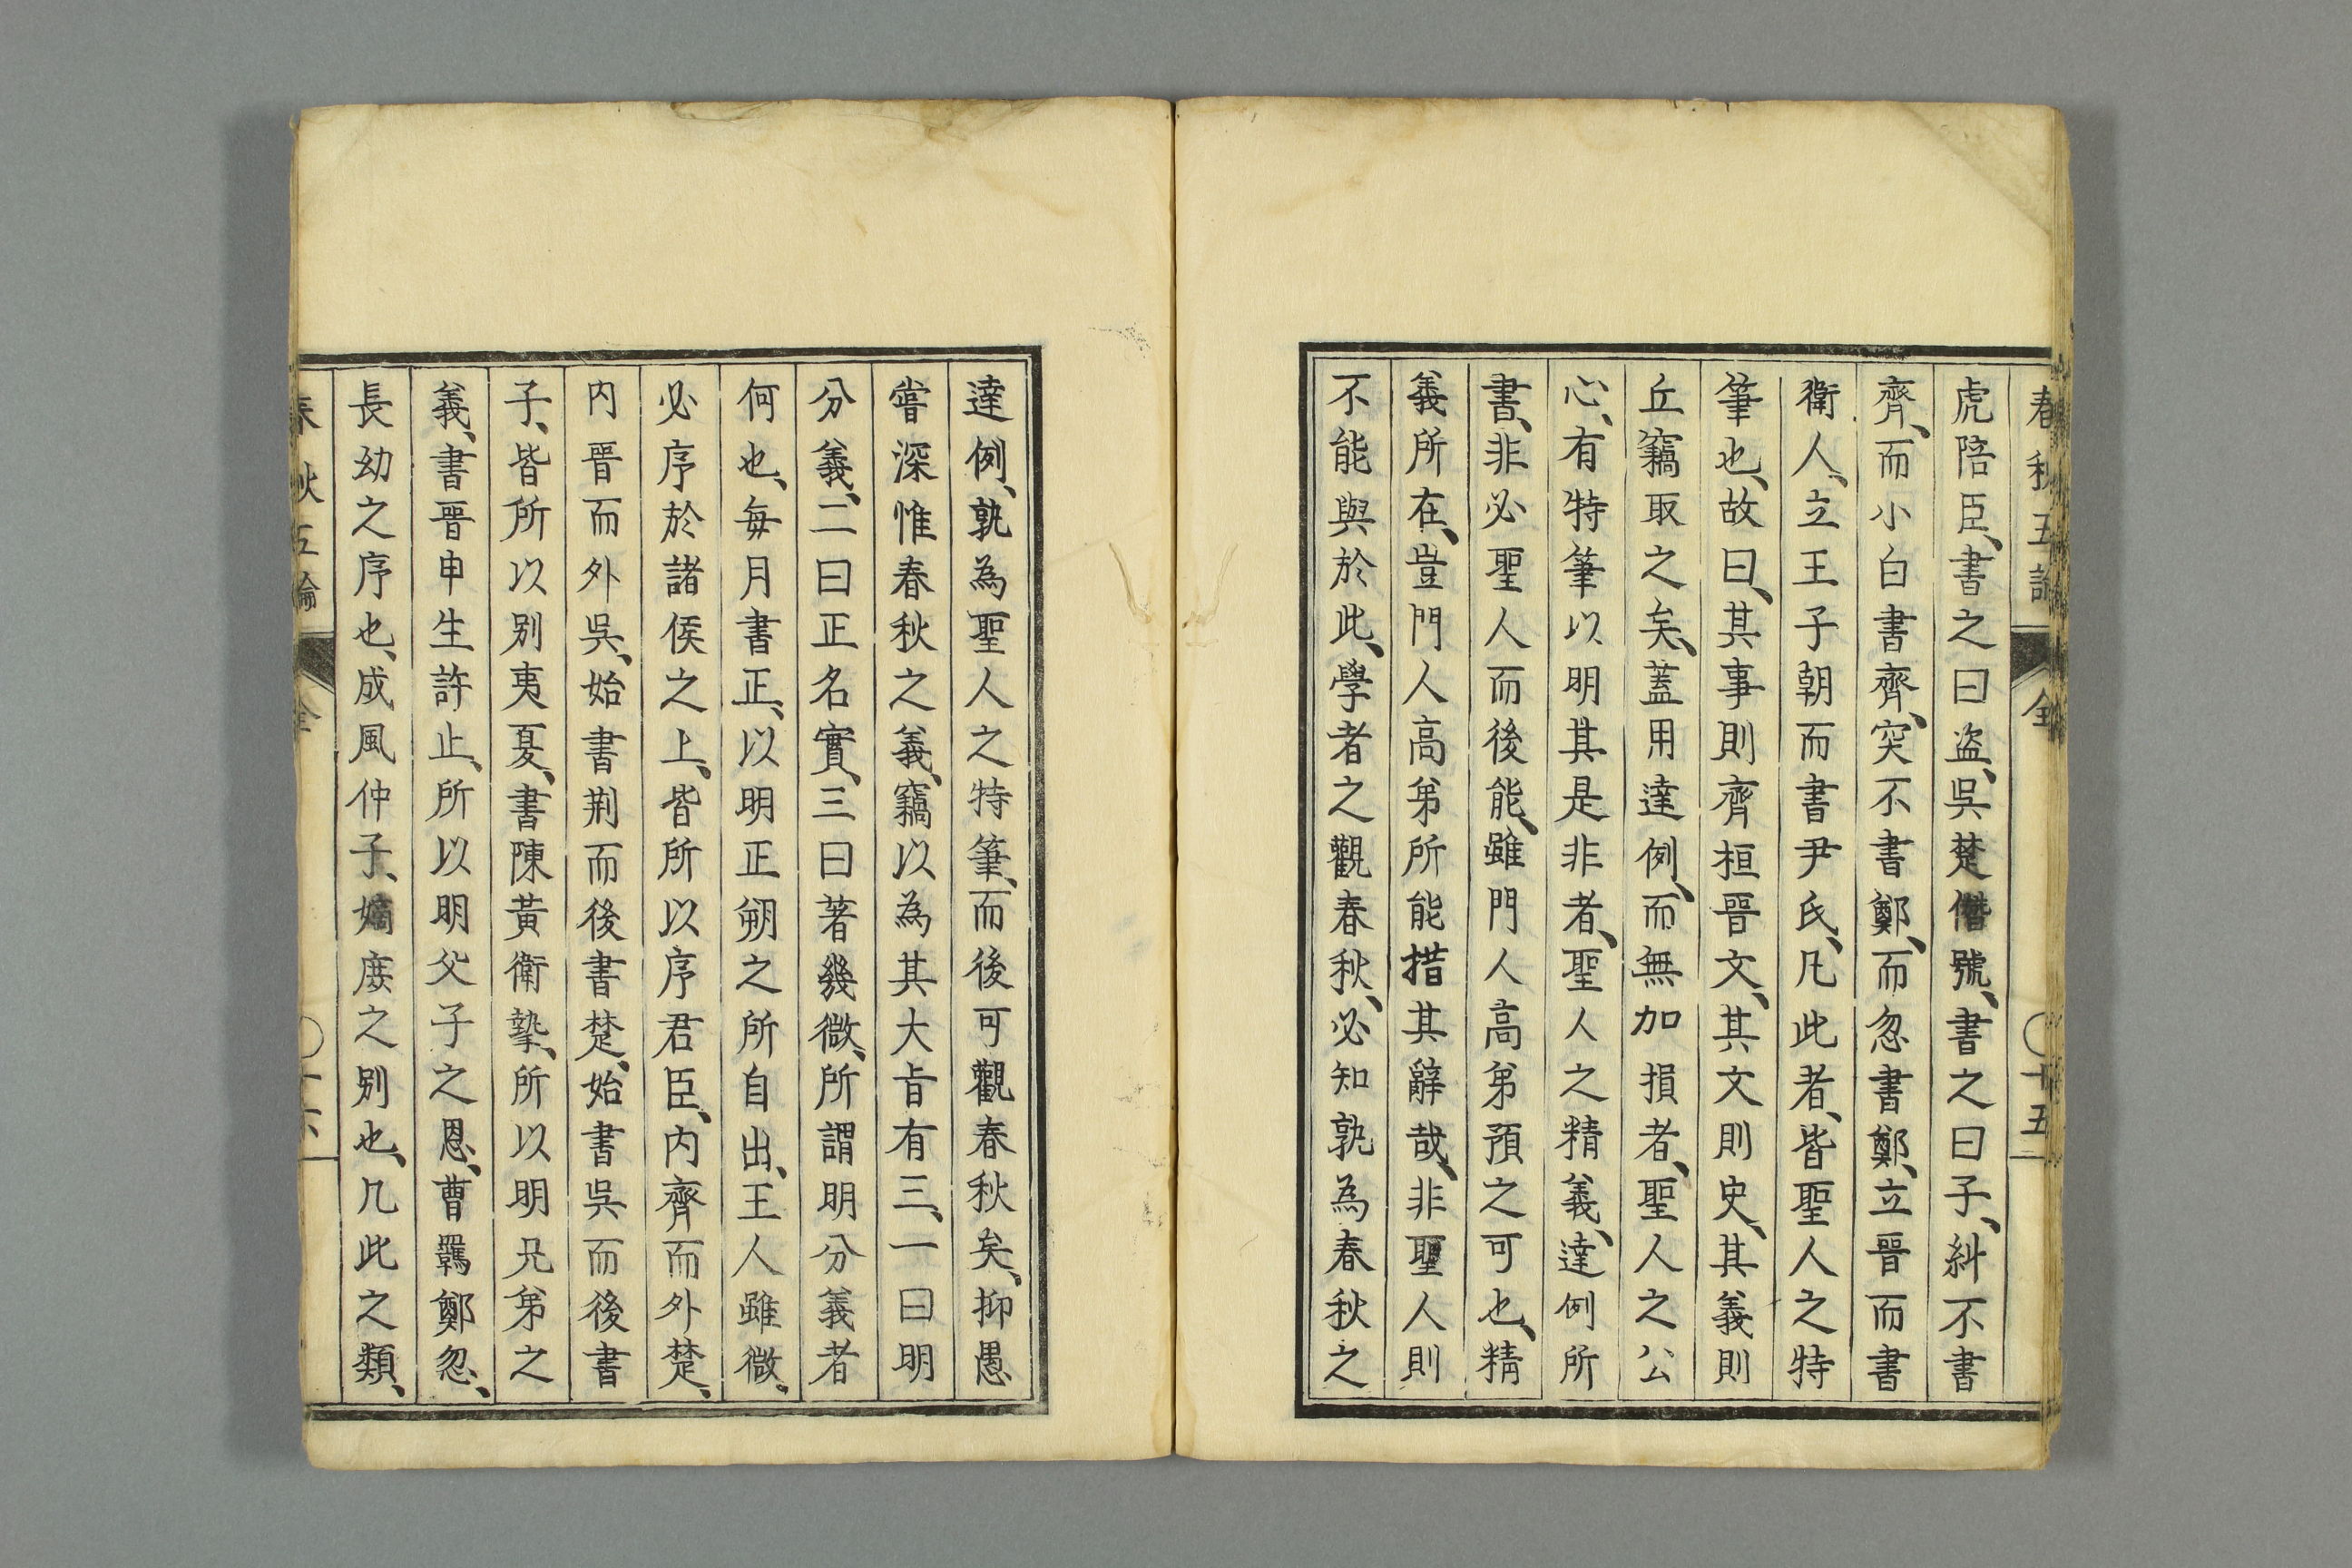 春秋五論 全 〇十五
虎陪臣、書之曰盗、吳楚僭號、書之曰子、糾不書
齊、而小白書齊、突不書鄭、而忽書鄭、立晉而書
衛人、立王子朝而書尹氏、凡此者、皆聖人之特
筆也、故曰、其事則齊桓晉文、其文則史、其義則
丘竊取之矣、蓋用達例、而無加損者、聖人之公
心、有特筆以明其是非者、聖人之精義、達例所
書、非必聖人而後能、雖門人高弟預之可也、精
義所在、豈門人高弟所能措其辭哉、非聖人則
不能與於此、學者之觀春秋、必知孰為春秋之
達例、孰為聖人之特筆、而後可觀春秋矣、抑愚
嘗深惟春秋之義、竊以為其大旨有三、一曰明
分義、二曰正名實、三曰著幾微、所謂明分義者
何也、每月書正、以明正朔之所自出、王人雖微、
必序於諸侯之上、皆所以序君臣、内齊而外楚、
内晉而外吳、始書荊而後書楚、始書吳而後書
子、皆所以别夷夏、書陳黃衛摯、所以明兄弟之
義、書晉申生許止、所以明父子之恩、曹羈鄭忽、
長幼之序也、成風仲子、嫡庶之别也、凡此之類、
春秋五論 全 〇十六